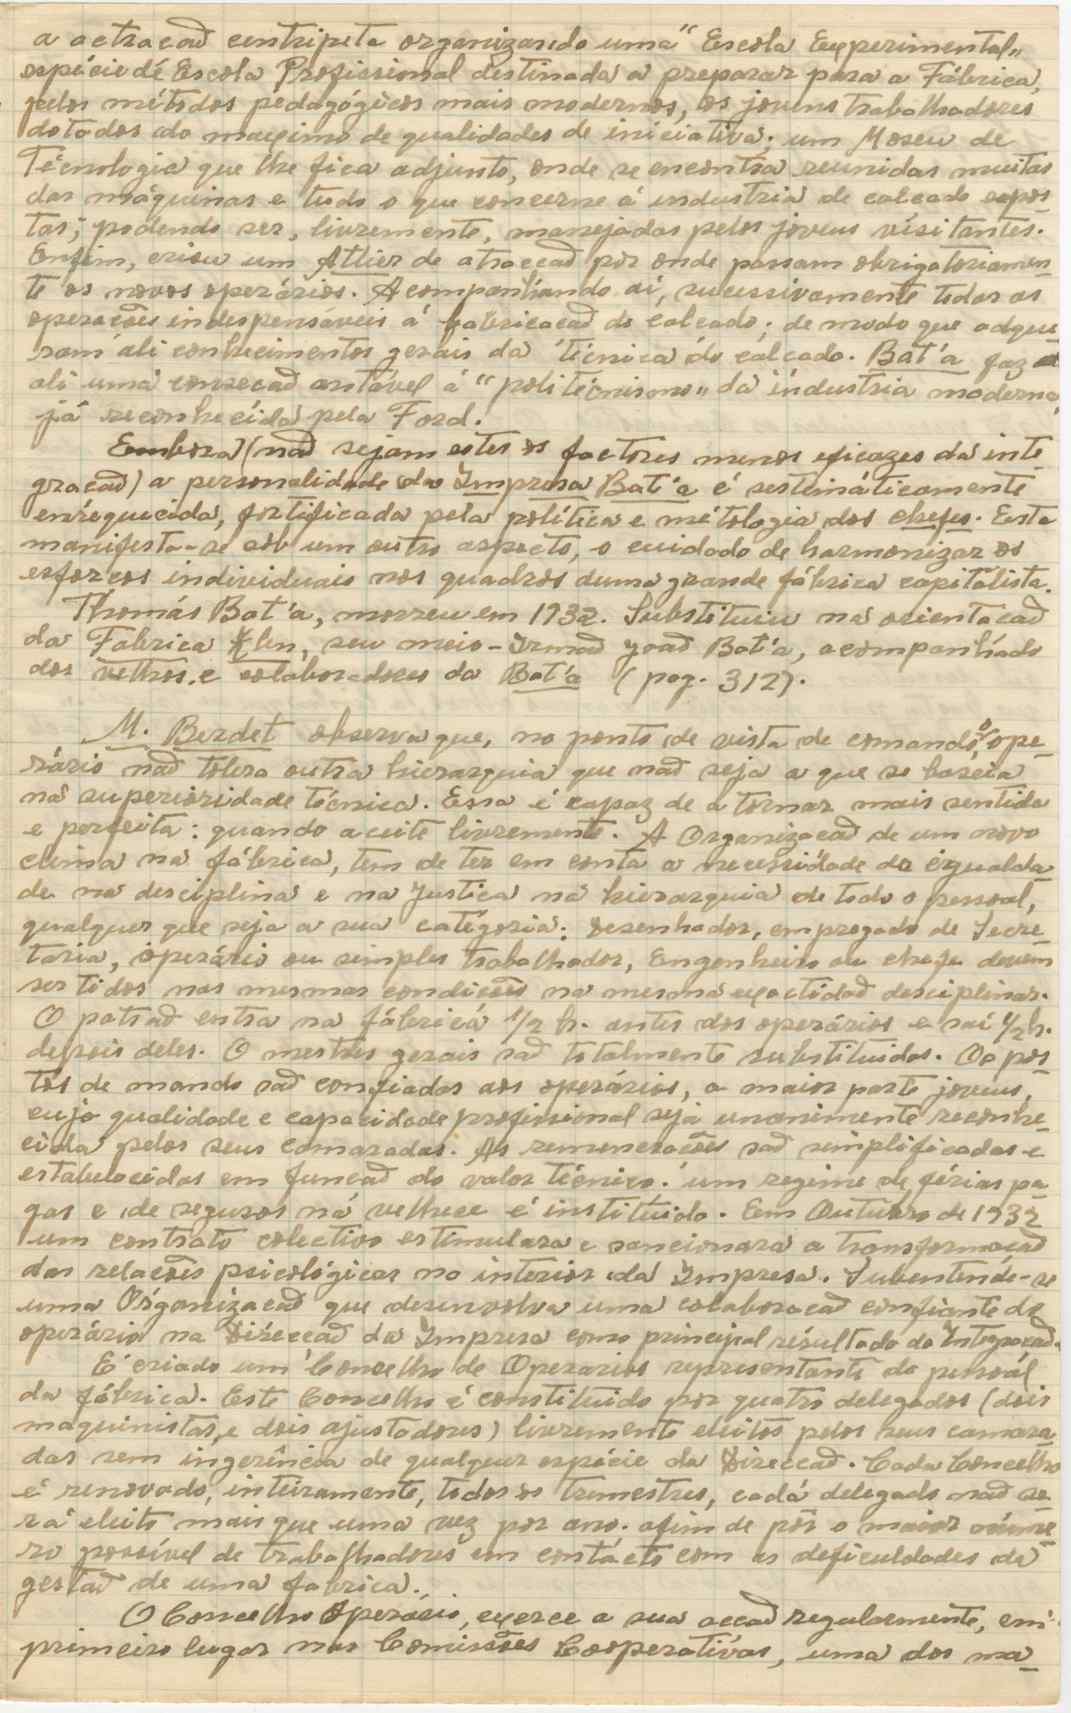 a actracaõ centripeta organizando uma "Escola Experimental"
espécie dé Escola Profissional destinada a preparar para a Fábrica,
pelos métodos pedagógicos mais modernos, os jovens trabalhadores
dotados do maximo de qualidades de iniciativa; um Moseu de
Técnologia que lhe fica adjunto, onde se encontra reunidas muitas
das máquinas e tudo o que concerne á industria de calcado expos-
tas; podendo ser, livremente, manejadas pelos jovens visitantes.
Enfim, criou um Attier de atraccaõ por onde passam obrigatoriamen-
te os novos operários. Acompanhando aí, sucessivamente todas as
operacões indespensáveis á fabricacaõ do calcado; de modo que adqui-
ram ali conhecimentos gerais da técnica do calcado. Bat'a faz
ali uma consecaõ notável á "politécnismo" da industria moderna,
já reconhecida pela Ford.
Embora (naõ sejam estes os factores menos eficazes da inte
gracaõ) a personalidade da Impresa Bat'a é sestemáticamente
enrequecida, fortificada pela política e métologia dos chefes. Esta
manifesta-se sob um outro aspecto, o cuidado de harmonizar os
esforcos individuais nos quadros duma grande fábrica capitálista.
Thomás Bat'a, morreu em 1932. Substituiu na orientacaõ
da Fabrica Zlin, seu meio-Irmaõ Joaõ Bat'a, acompanhado
dos velhos e colaboradores da Bat'a (pag. 312).
M. Berdet observa que, no ponto de vista de comando, o ope-
rário naõ tolera outra hierarquia que naõ seja a que se baseia
na superioridade técnica. Essa é capaz de a tornar mais sentida
e perfeita: quando aceite livremente. A Organizacaõ de um novo
clima na fábrica, tem de ter em conta a necessidade da igualda-
de na desciplina e na Justica na hierarquia de todo o pessoal,
qualquer que seja a sua catégoria; Desenhador, empregado de Secre-
taria, operário ou simples trabalhador, Engenheiro ou chefe devem
ser tidos nas mesmas condicões na mesma exactidaõ desciplinar.
O patraõ entra na fábrica 1/2 h. antes dos operários e sai 1/2 h.
depois deles. O mestres gerais saõ totalmente substituidos. Os pos-
tos de mando saõ confiados aos operários, a maior parte jovens,
cuja qualidade e capacidade profissional seja unanimente reconhe-
cida pelos seus camaradas. As remuneracões saõ simplificadas e
estabelecidas em funcaõ do valor técnico. um regime de férias pa-
gas e de seguros na velhece é instituido. Em Outubro de 1937
um contrato colectivo estimulara e sancionará a transformacaõ
das relacões psicológicas no interior da Impresa. Subentende-se
uma Organizacaõ que desenvolva uma colaboracaõ confiante do
operário na Direccaõ da Impresa como principal résultado da Integracaõ.
É criado um Concelho de Operarios representante do pessoal
da fábrica. Este Concelho é constituido por quatro delegados (dois
maquinistas, e dois ajustadores) livremente eleitos pelos seus camara
das sem ingerência de qualquer espécie da Direccaõ. Cada Concelho
é renovado, inteiramente, todos os trimestres, cada delegado naõ se-
rá eleito mais que uma vez por ano. afim de pôr o maior núme
ro possível de trabalhadores em contácto com as deficuldades da
gestaõ de uma fabrica.
O Concelho Operário, exerce a sua accaõ regularmente, em
primeiro lugar nas Comissões Cooperativas, uma dos ma-